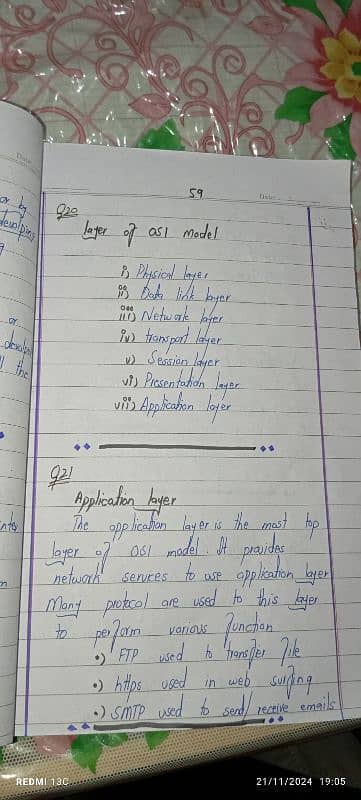 59
Date:
Q20
Layer of OSI Model
i) Physical layer
ii) Data link layer
iii) Network layer
iv) transport layer
v) Session layer
vi) Presentation layer
vii) Application layer
Q21
Application layer
The application layer is the most top
layer of OSI model. It provides
network services to use application layer
Many protocol are used to this layer
to perform various function
•) FTP used to transfer file
•) https used in web surfing
•) SMTP used to send/receive emails
REDMI 13C
21/11/2024 19:05